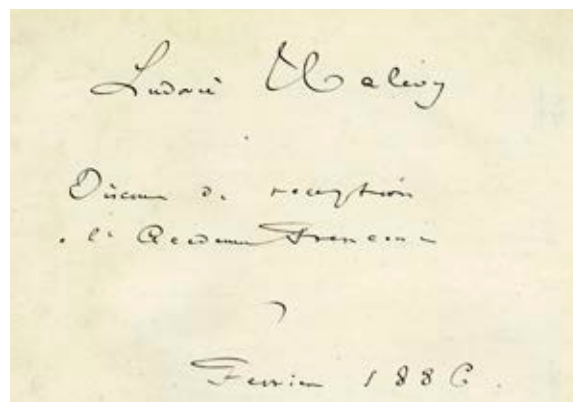 Ludovic Halévy
Discours de réception
à l'Académie Française
Février 1886.